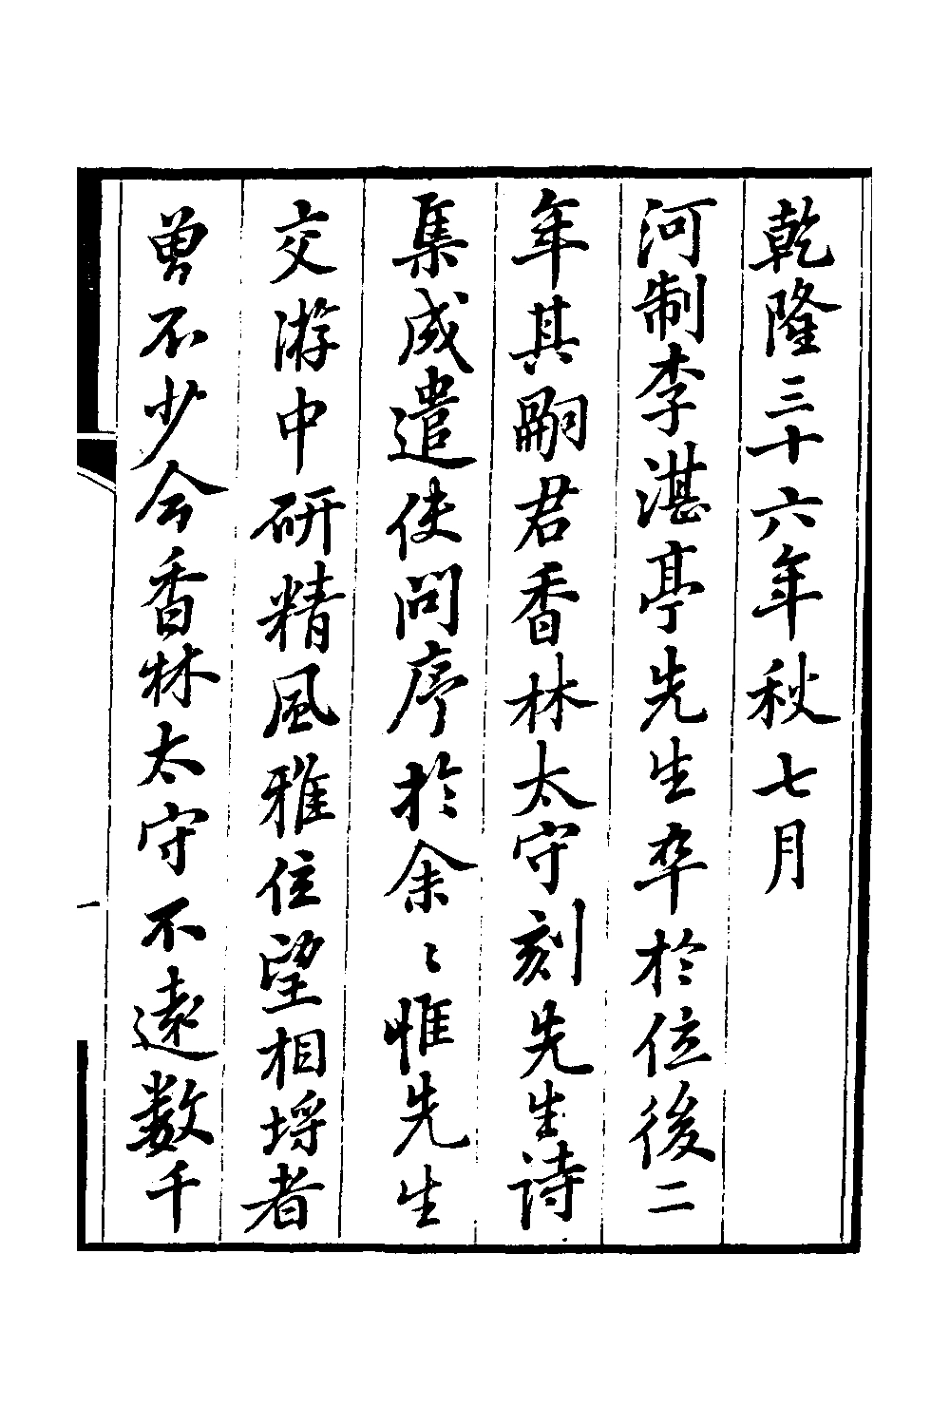 乾隆三十六年秋七月
河制李湛亭先生卒於位後二
年其嗣君香林太守刻先生詩
集成遣使問序於余〻惟先生
交游中研精風雅位望相埒者
曽不少今香林太守不遠数千
一